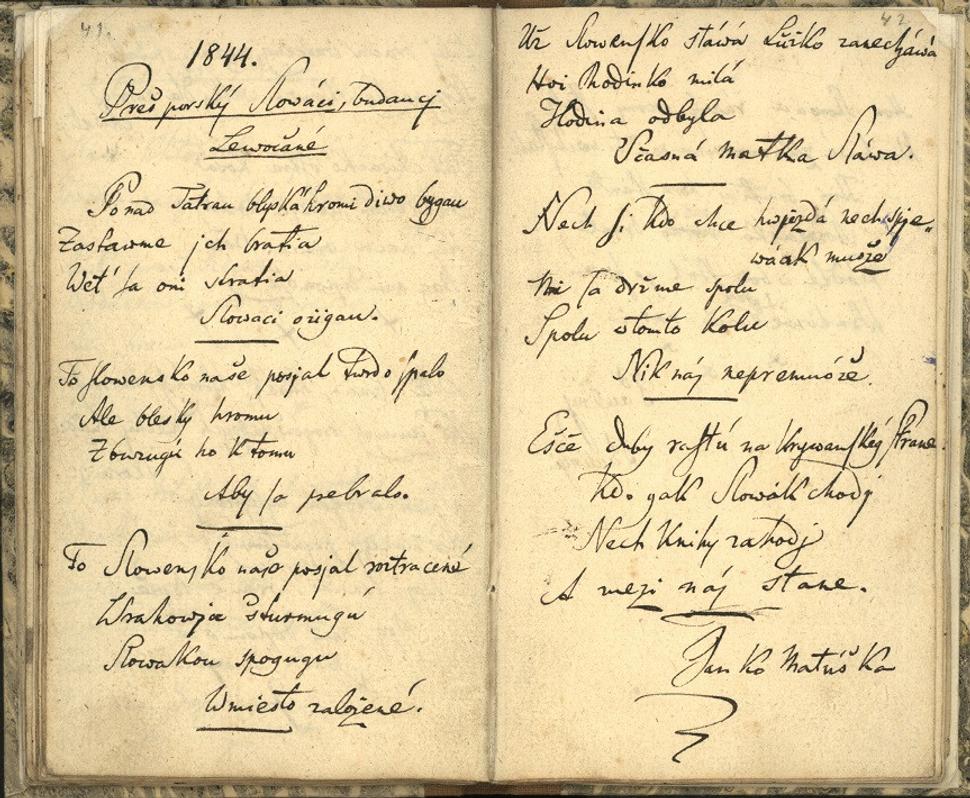 41.
1844.
Prešporský Slowáci, budaucj
Lewočané
Ponad Tatrau blyská hromi diwo bygau
Zastawme jch bratia
Wet' sa oni stratia
Slowaci ožigau.
To Slowensko naše posjal twrdo spalo
Ale blesky hromu
Zburugú ho k tomu
Aby sa pebralo.
To Slowensko naše posjal roztracené
Wrahowja šturmugú
Slowakou spogugu
Wmiesto založené.
42
Uz Slowensko stáwá Lúčko zanecháwá
Hoi Rodinko milá
Hodina odbyla
Včasná matka Sláwa.
Nech si kdo chce hwjzdá nech spje„
wáak muože
Mi sa držme spolu
Spolu wtomto Kolu
Nik nás nepremuóže.
Ešče duby rastú na Krywanskég strane.
Kdo gak Slowák chodj
Nech Knihy zahodj
A mezi nás stane.
Janko Matúška